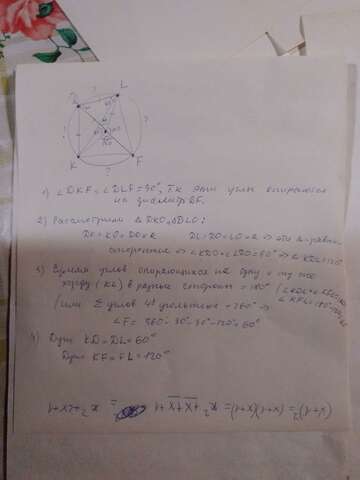 D
L
?
?
?
60
K
F
?
1) ∠DKF = ∠DLF = 90°, т.к. эти углы опираются
на диаметр DF.
2) Рассмотрим Δ DKO, ΔDLO:
DK=KO=DO=R DL=DO=LO=R ⇒ эти Δ-равно
сторонние ⇒ ∠KDO=∠LDO=60° ⇒ ∠KDL=120°
3) Сумма углов опирающихся на одну и ту же
хорду (KL) в разные стороны = 180°
/или Σ углов 4х угольника = 360° ⇒
∠F = 360-90-90-120=60°
4) Дуги KD=DL=60°
Дуги KF=FL=120°
(x+1)²=(x+1)(x+1)= x²+x+x+1 = x²+2x+1